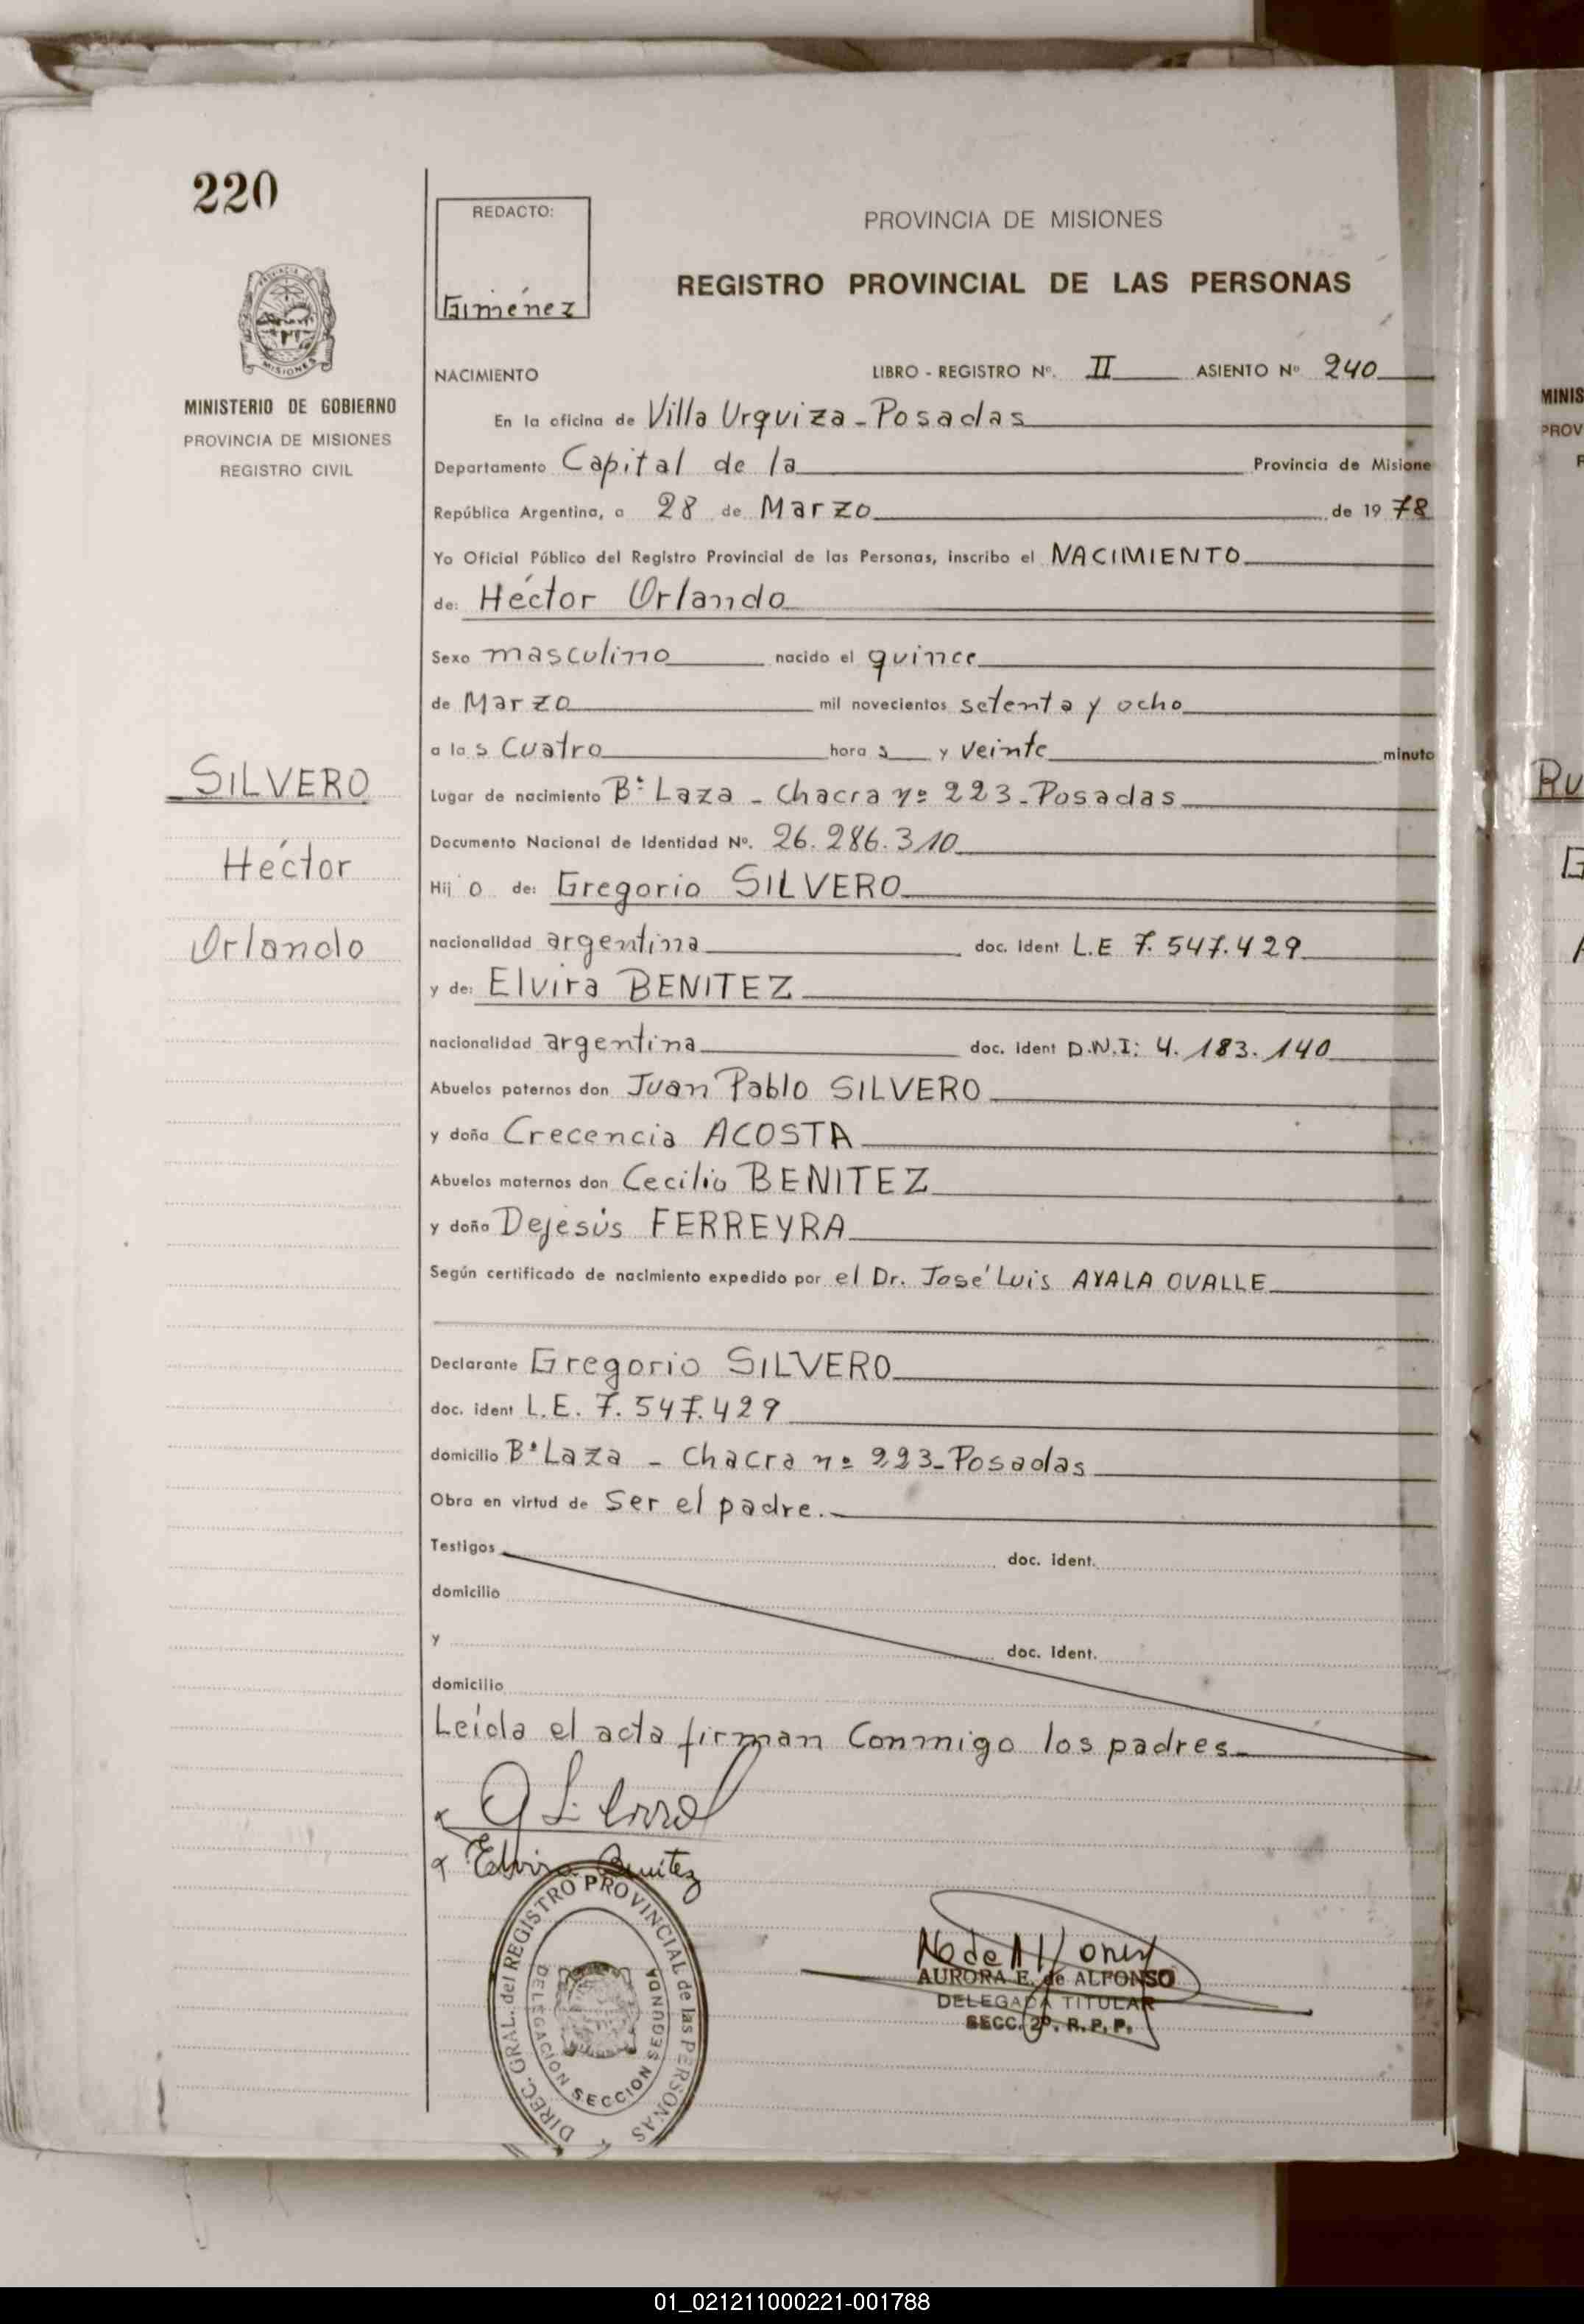 220
REDACTO:
Giménez
PROVINCIA DE MISIONES
REGISTRO PROVINCIAL DE LAS PERSONAS
MISIONES
MINISTERIO DE GOBIERNO
PROVINCIA DE MISIONES
REGISTRO CIVIL
NACIMIENTO LIBRO - REGISTRO Nº. II ASIENTO Nº 240
En la oficina de Villa Urquiza - Posadas
Departamento Capital de la Provincia de Misione
República Argentina, a 28 de Marzo de 1978
Yo Oficial Público del Registro Provincial de las Personas, inscribo el NACIMIENTO
de: Héctor Orlando
Sexo masculino nacido el quince
de Marzo mil novecientos setenta y ocho
a las cuatro horas y veinte minuto
SILVERO
Héctor
Orlando
Lugar de nacimiento Bº Laza - Chacra nº 223 - Posadas
Documento Nacional de Identidad Nº. 26.286.310
Hijo de: Gregorio SILVERO
nacionalidad argentina doc. Ident L.E 7.547.429
y de: Elvira BENITEZ
nacionalidad argentina doc. Ident D.N.I: 4.183.140
Abuelos paternos don Juan Pablo SILVERO
y doña Crecencia ACOSTA
Abuelos maternos don Cecilio BENITEZ
y doña Dejesús FERREYRA
Según certificado de nacimiento expedido por el Dr. José Luis AYALA OVALLE
Declarante Gregorio SILVERO
doc. ident L.E. 7.547.429
domicilio Bº Laza - Chacra nº 223 - Posadas
Obra en virtud de ser el padre.
Testigos doc. ident.
domicilio
y doc. ident.
domicilio
Leída el acta firman conmigo los padres
Elvira Benitez
DIREC. GRAL. del REGISTRO PROVINCIAL de las PERSONAS
DELEGACION SECCION SEGUNDA
AURORA E. de ALFONSO
DELEGADA TITULAR
SECC. 2º. R. P. P.
MINIS
PROV
R
Ru
01_021211000221-001788